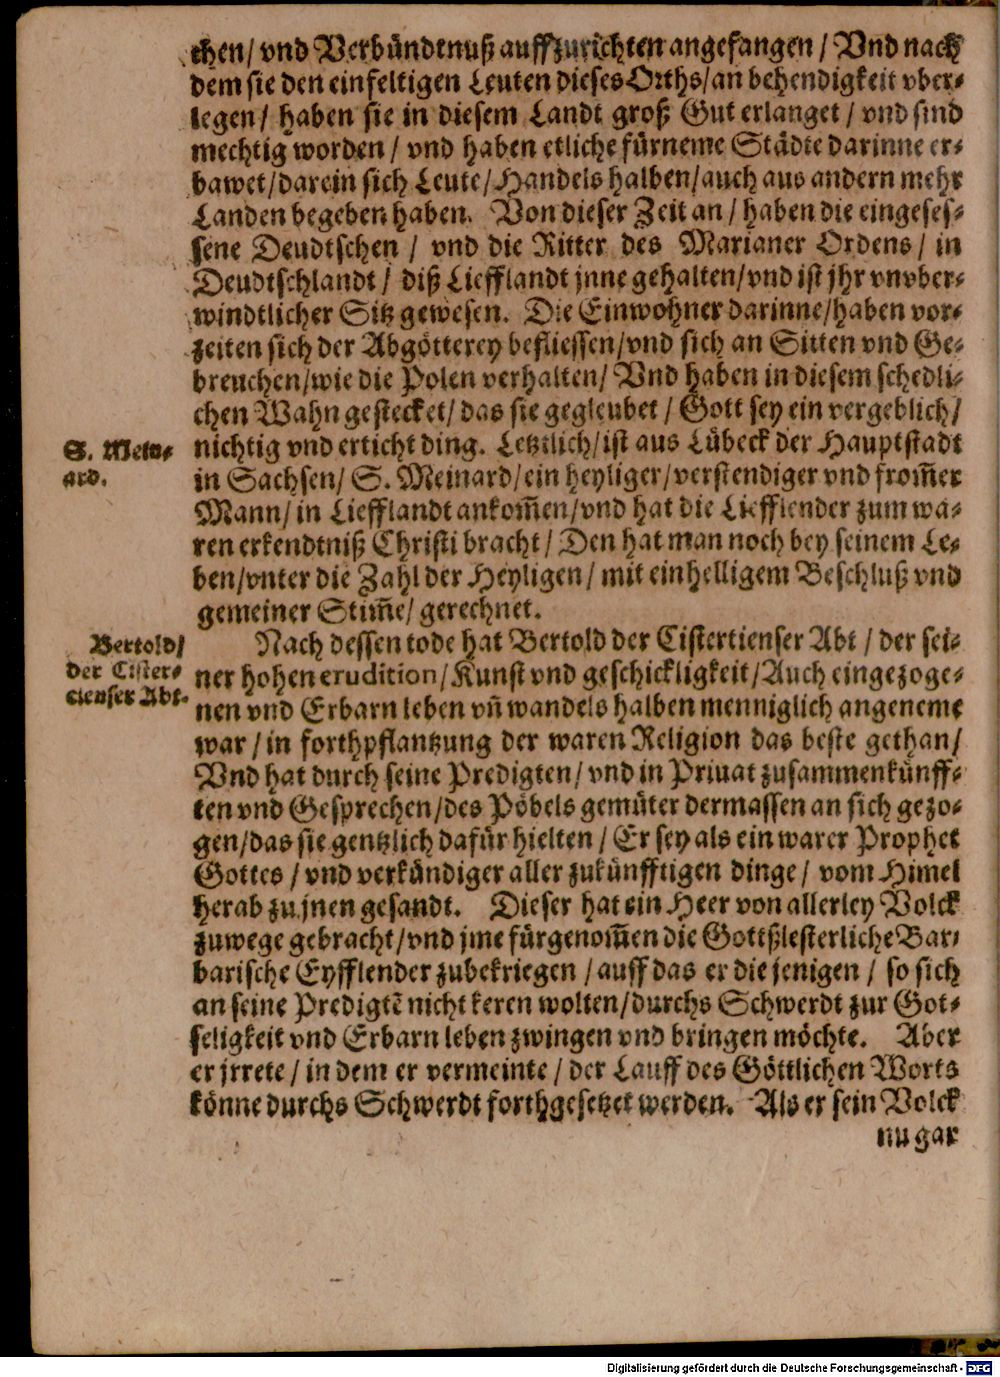 chen/ vnd Verbündtnuß auffzurichten angefangen / Vnd nach
dem sie den einfeltigen Leuten dieses Orths/an behendigkeit vber-
legen/ haben sie in diesem Landt groß Gut erlanget / vnd sind
mechtig worden / vnd haben etliche fürneme Städte darinne er-
bawet/darein sich Leute/Handels halben/auch aus andern mehr
Landen begeben haben. Von dieser Zeit an / haben die eingeses-
sene Deudtschen / vnd die Ritter des Marianer Ordens/ in
Deudtschlandt / diß Liefflandt jnne gehalten/vnd ist jhr vnvber-
windtlicher Sitz gewesen. Die Einwohner darinne/haben vor-
zeiten sich der Abgötterey befliessen/vnd sich an Sitten vnd Ge-
breuchen/wie die Polen verhalten/ Vnd haben in diesem schedli-
chen Wahn gestecket/das sie gegleubet / Gott sey ein vergeblich/
S. Mein-
ard.
nichtig vnd erticht ding. Letztlich/ist aus Lübeck der Hauptstadt
in Sachsen/ S. Meinard/ein heyliger/verstendiger vnd from̃er
Mann/in Liefflandt ankom̃en/vnd hat die Liefflender zum wa-
ren erkendtniß Christi bracht/ Den hat man noch bey seinem Le-
ben/vnter die Zahl der Heyligen / mit einhelligem Beschluß vnd
gemeiner Stim̃e/ gerechnet.
Bertold/
der Cister-
tienser Abt.
Nach dessen tode hat Bertold der Cistertienser Abt / der sei-
ner hohen erudition/Kunst vnd geschickligkeit/Auch eingezoge-
nen vnd Erbarn leben vñ wandels halben menniglich angeneme
war / in forthpflantzung der waren Religion das beste gethan/
Vnd hat durch seine Predigten/ vnd in Priuat zusammenkünff-
ten vnd Gesprechen/des Pöbels gemüter dermassen an sich gezo-
gen/das sie gentzlich dafür hielten / Er sey als ein warer Prophet
Gottes / vnd verkündiger aller zukünfftigen dinge/ vom Himel
herab zu jnen gesandt. Dieser hat ein Heer von allerley Volck
zuwege gebracht/vnd jme fürgenom̃en die Gottßlesterliche Bar-
barische Eyfflender zubekriegen / auff das er die jenigen / so sich
an seine Predigtẽ nicht keren wolten/durchs Schwerdt zur Got-
seligkeit vnd Erbarn leben zwingen vnd bringen möchte. Aber
er jrrete / in dem er vermeinte / der Lauff des Göttlichen Worts
könne durchs Schwerdt forthgesetzet werden. Als er sein Volck
nu gar
Digitalisierung gefördert durch die Deutsche Forschungsgemeinschaft - DFG